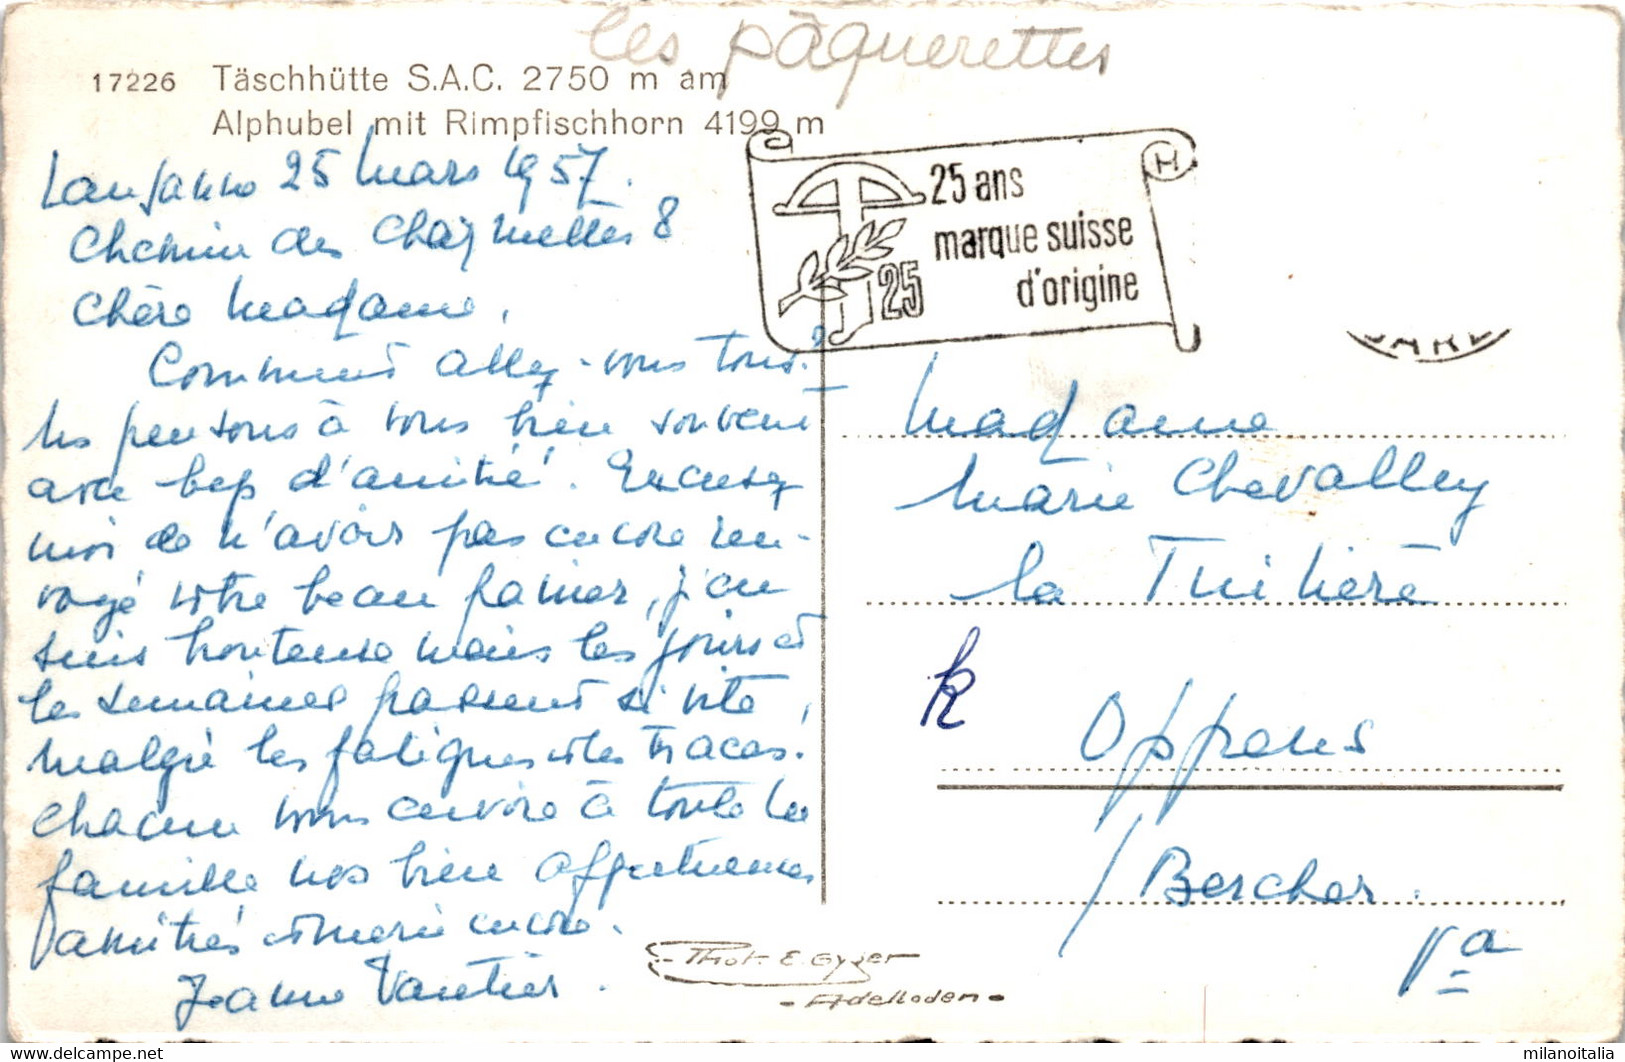 les pâquerettes
17226 Täschhütte S.A.C. 2750 m am
Alphubel mit Rimpfischhorn 4199 m
Lausanne 25 Mars 1957.
Chemin des Charmettes 8
Chère Madame,
Comment allez-vous tous?
Ns pensons à vous bien souvent
avec bcp d'amitié. Excusez
moi de n'avoir pas encore ren-
voyé votre beau panier, j'en
suis honteuse mais les jours et
les semaines passent si vite,
malgré les fatigues et les tracas.
Chacun vous envoie à toute la
famille nos bien affectueuses
amitiés et merci encore.
Jeanne Vautier.
25 ans
marque suisse
d'origine
25
H
Madame
Marie Chevalley
la Thilière
k
Oppens
/ Bercher.
Vd
Phot. E. Gyger
- Adelboden -
delcampe.net
milanoitalia